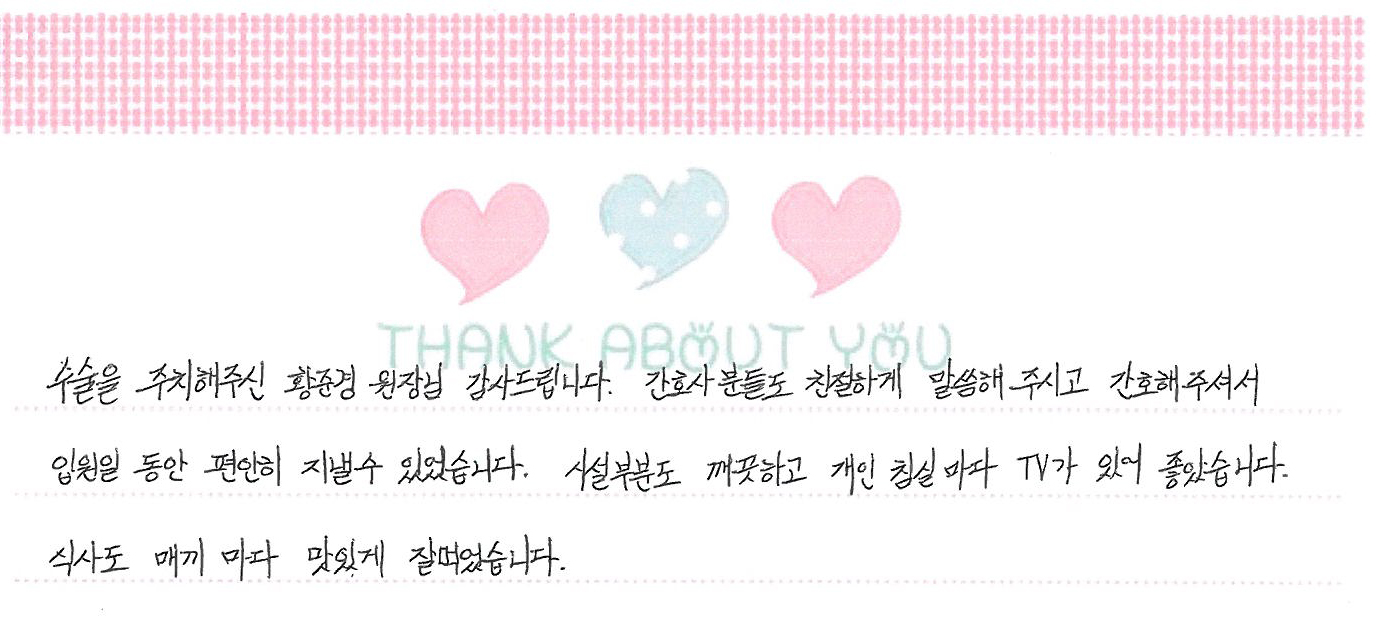 THANK ABOUT YOU
수술을 주치해주신 황준경 원장님 감사드립니다. 간호사분들도 친절하게 말씀해 주시고 간호해주셔서
입원일 동안 편안히 지낼수 있었습니다. 시설부분도 깨끗하고 개인 침실마다 TV가 있어 좋았습니다.
식사도 매끼 마다 맛있게 잘먹었습니다.